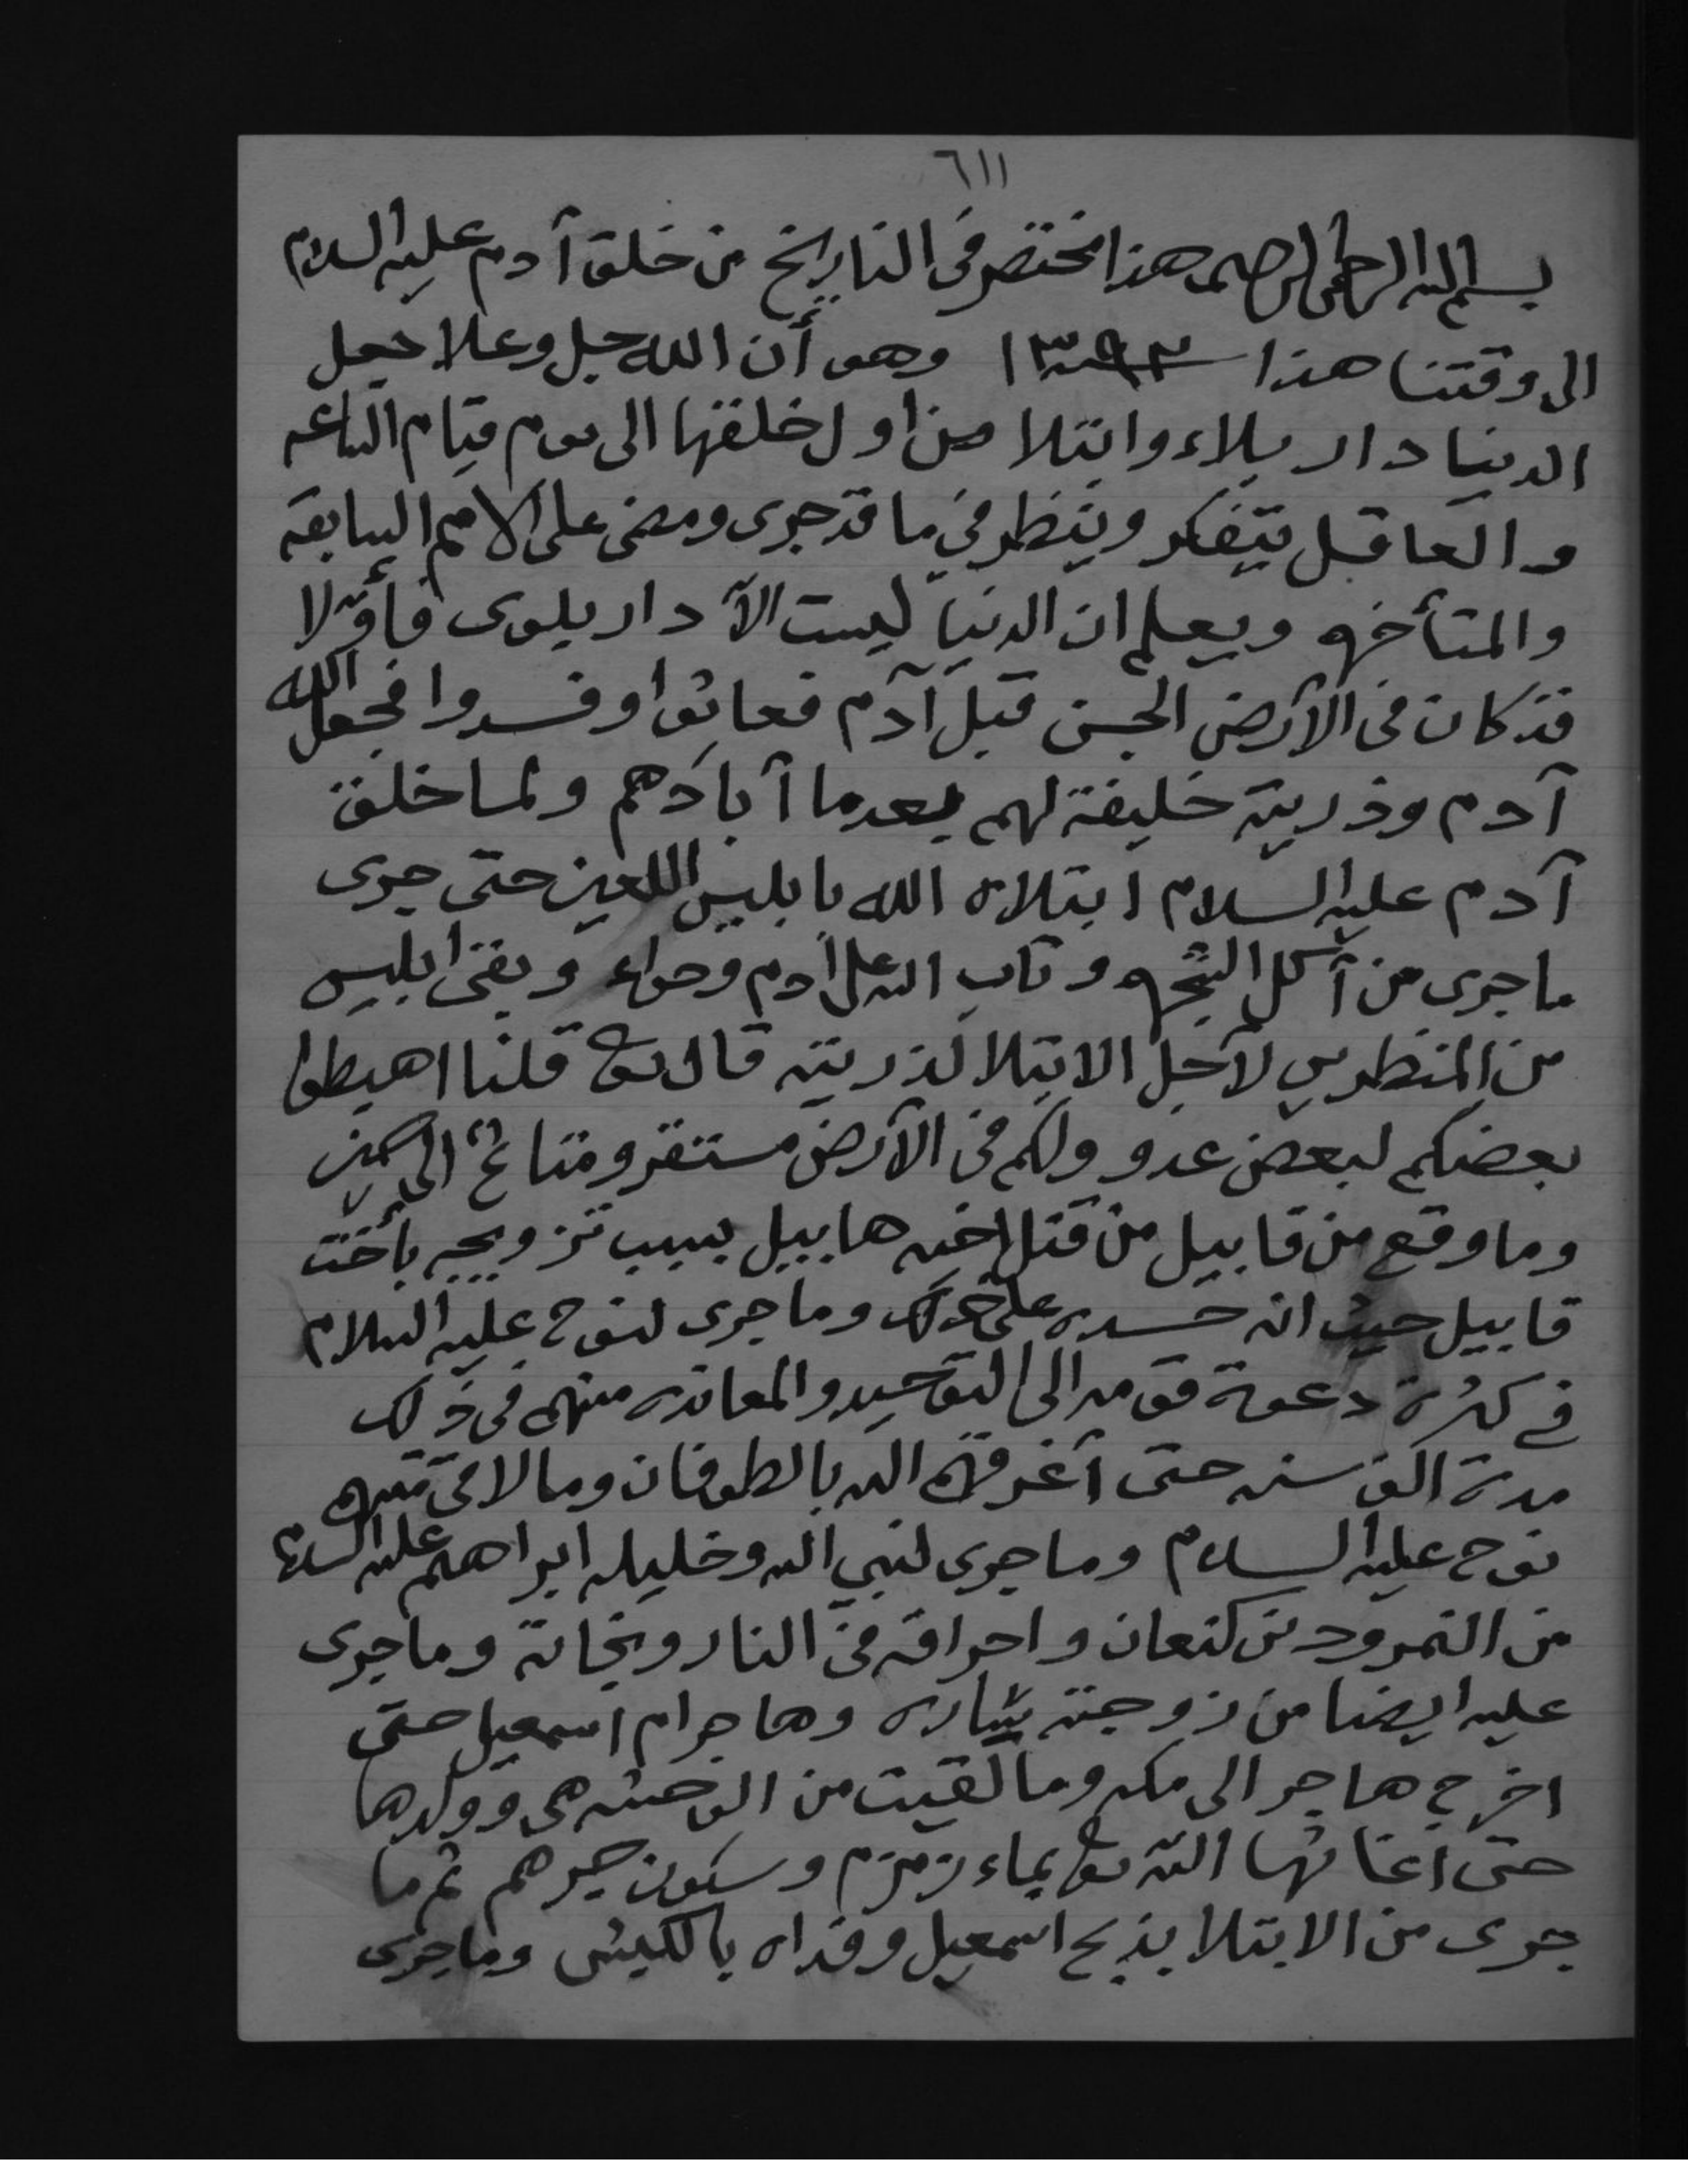 ٦١١
بسم الله الرحمن الرحيم هذا مختصر في التاريخ من خلق آدم عليه السلام
الى وقتنا هذا ١٣٩٣ وهو أن الله جل وعلا جعل
الدنيا دار بلاء وابتلا من اول خلقها الى يوم قيام الساعه
والعاقل يتفكر وينظر في ما قد جرى ومضى على الامم السابقه
والمتأخره ويعلم ان الدنيا ليست الآ دار بلوى فأوّلا
قد كان في الآرض الجن قبل آدم فعاثوا وفسدوا فجعل الله
آدم وذريته خليفة لهم بعدما آبادهم ولما خلق
آدم عليه السلام ابتلاه الله بابليس اللعين حتى جرى
ما جرى من آكل الشجره وتاب الله على آدم وحواء وبقى ابليس
من المنظرين لآجل الابتلا لذريته قال تعالى قلنا اهبطوا
بعضكم لبعض عدو ولكم في الآرض مستقر ومتاع الى حين
وما وقع من قابيل من قتل اخيه هابيل بسبب تزويجه بأخت
قابيل حيث انه حسده على ذلك وما جرى لنوح عليه السلام
في كثرة دعوة قومه الى التوحيد والمعانده منهم في ذلك
مدة الف سنه حتى آغرقهم الله بالطوفان وما لاقى منهم
نوح عليه السلام وما جرى لنبي الله وخليله ابراهيم عليه السلام
من النمرود بن كنعان واحراقه في النار ونجاته وما جرى
عليه ايضا من زوجته ساره وهاجر ام اسمعيل حتى
اخرج هاجر الى مكه وما لقيت من الوحشه هي وولدها
حتى آغاثها الله تعالى بماء زمزم وسكون جيرهم ثم ما
جرى من الابتلا بذبح اسمعيل وفداه بالكبش وما جرى